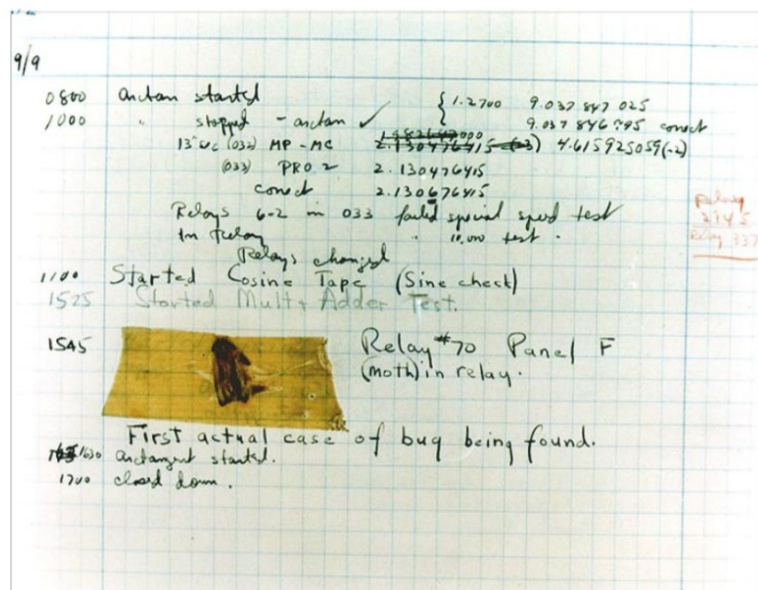 9/9
0800 arctan started { 1.2700 9.037 847 025
1000 " stopped - arctan ✓ { 9.037 846 995 correct
13"uc (032) MP-MC 2.130476415 (-3) 4.615925059(-2)
(033) PRO 2 2.130476415
correct 2.130676415
Relays 6-2 in 033 failed special speed test
In Relay " 10.000 test .
Relay
2145
Relay 337
Relays changed
1100 Started Cosine Tape (Sine check)
1525 Started Mult + Adder Test.
1545 Relay #70 Panel F
(moth) in relay.
First actual case of bug being found.
1630 arctangent started.
1700 closed down.